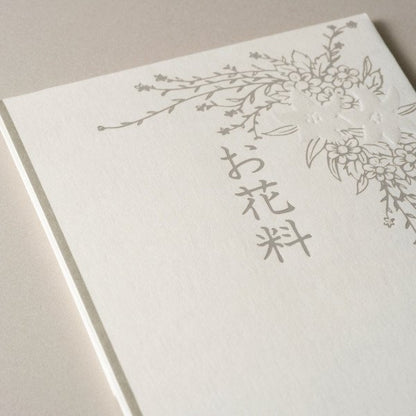 お花料